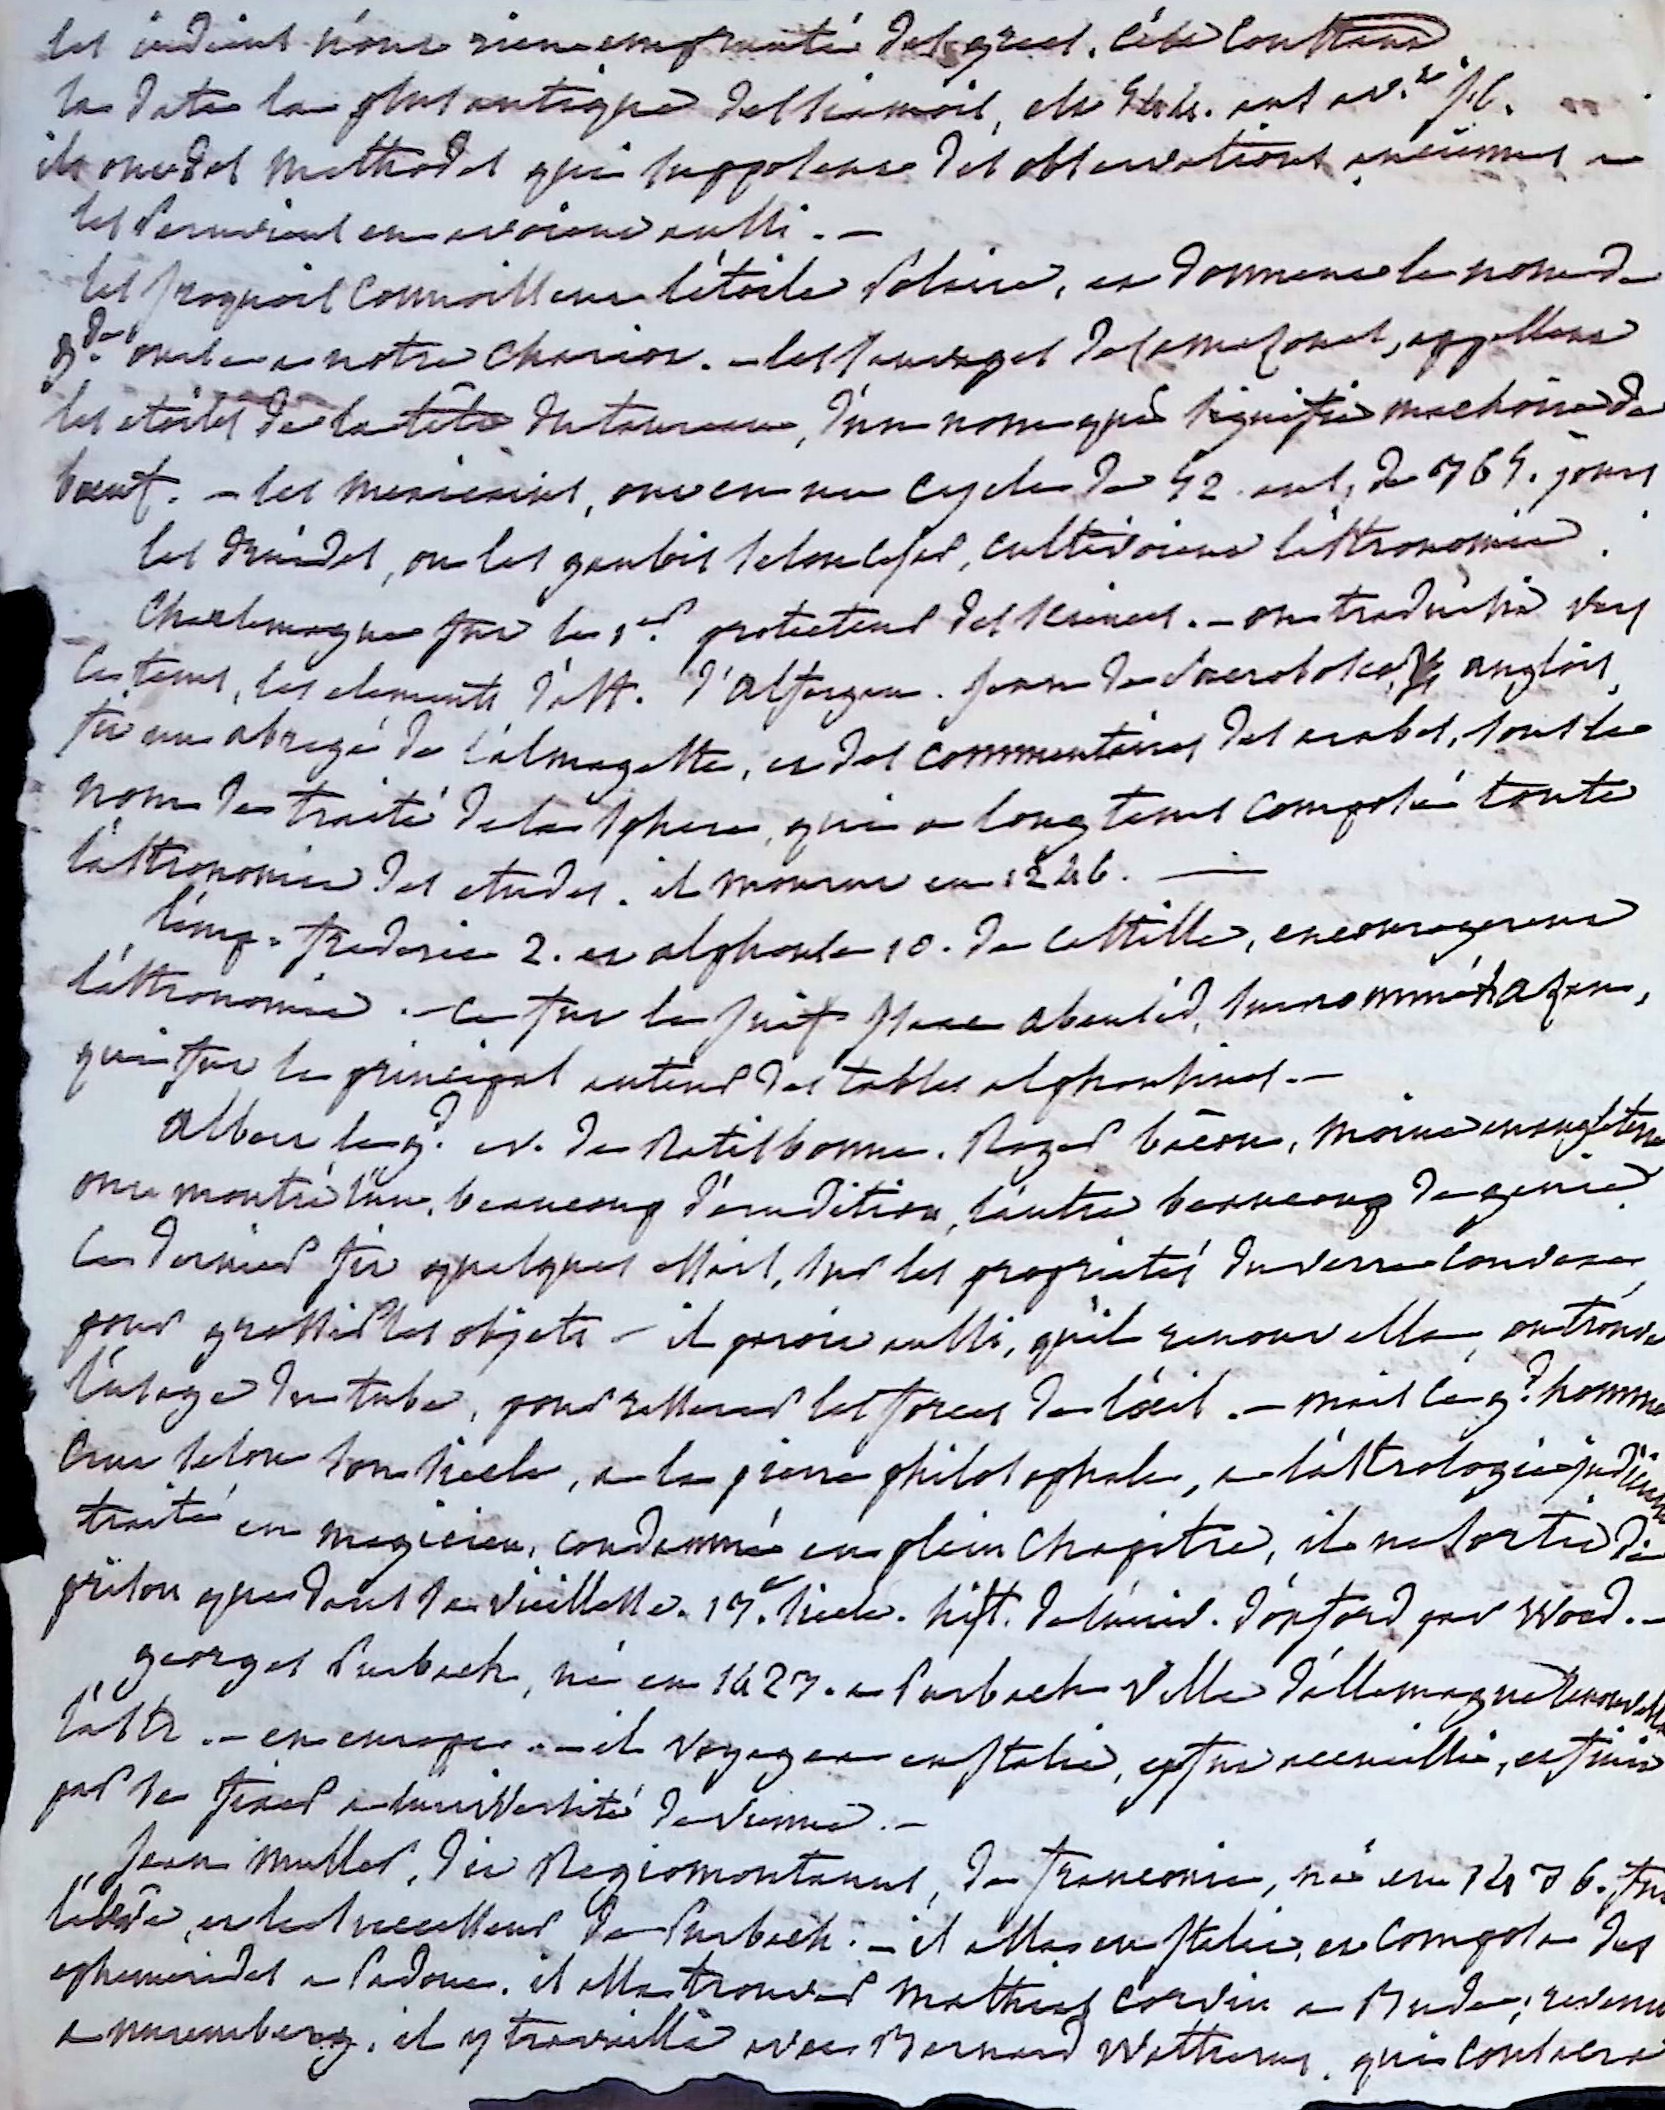 les indiens n'ont rien emprunté des grecs. c'est constant
la date la plus antique des siamois, est 544. ans av.t J.C.
ils ont des methodes qui supposent des observations anciennes —
les Peruviens en avoient aussi. —
les Iroquois connoissent l'étoile Polaire, et donnent le nom de
g.de ourse a notre chariot. — les sauvages des amazones, appellent
les etoiles de la tête du taureau, d'un nom qui signifie machoire de
boeuf. — les mexicains, ont eu un cycle de 52 ans, de 365. jours
les druides, ou les gaulois selon Cesar, cultivoient l'astronomie.
Charlemagne fut le 1.er protecteur des sciences. — on traduisit vers
ce tems, les elements d'ast. d'Alfergan. Jean de Sacrobosco, anglois,
fit un abregé de l'almageste, et des commentaires des arabes, sous le
nom de traité de la sphere, qui a longtems composé toute
l'astronomie des etudes. il mourut en 1246. —
l'emp. frederic 2. et alphonse 10. de castille, encouragerent
l'astronomie. — ce fut le juif Isaac abensid, surnommé hazan,
qui fut le principal auteur des tables alphonsines. —
Albert le g.d ev. de Ratisbonne. Roger bacon, moine en angleterre
ont montré l'un, beaucoup d'erudition, l'autre beaucoup de genie.
Ce dernier fit quelques essais, sur les proprietés du verre convexe,
pour grossir les objets — il paroit aussi, qu'il renouvella, ou trouva
l'usage du tube, pour resserrer les forces de l'oeil. — mais ce g.d homme
crut selon son siecle, a la pierre philosophale, a l'astrologie judiciaire
traité en magicien, condamné en plein chapitre, il ne sortit de
prison que dans la vieillesse. 13.e siecle. hist. de l'univ. d'oxford par Wood. —
georges Purbach, né en 1423. a Purbach ville d'allemagne renouvella
l'astr. — en europe. — il voyagea en Italie, y fut accueilli, et finit
par se fixer a l'université de vienne. —
Jean Muller, dit Regiomontanus, de franconie, né en 1436. fut
l'élève, et le successeur de Purbach. — il alla en Italie, et composa des
ephemerides a Padoue. il alla trouver Mathias Corvin a Bude; revenu
a nuremberg, il y travailla avec Bernard Waltherus, qui consacra